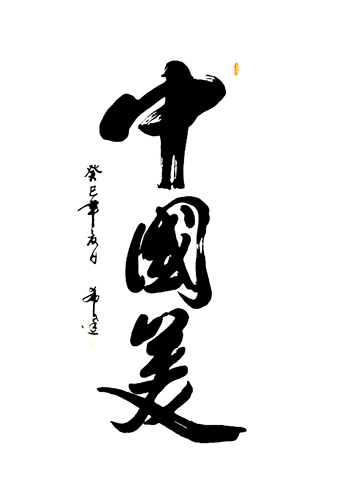 中國美
癸巳年夏日 希達